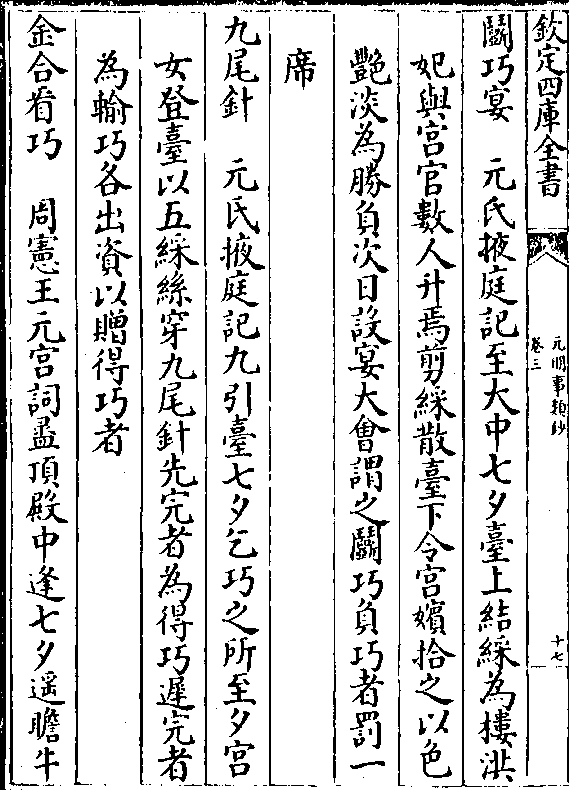 欽定四庫全書
元明事類鈔
卷三
十七
鬭巧宴　元氏掖庭記至大中七夕臺上結綵為樓洪
妃與宫官數人升焉剪綵散臺下令宫嬪拾之以色
艷淡為勝負次日設宴大會謂之鬭巧負巧者罰一
席
九尾針　元氏掖庭記九引臺七夕乞巧之所至夕宫
女登臺以五綵絲穿九尾針先完者為得巧遲完者
為輸巧各出資以贈得巧者
金合看巧　周憲王元宫詞盝頂殿中逢七夕遥瞻牛